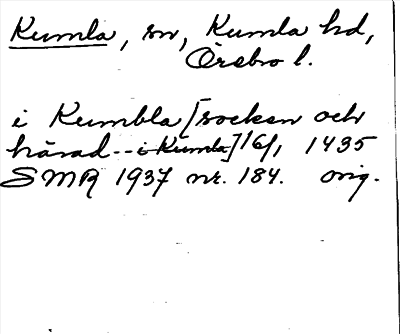 Kumla, sn, Kumla hd,
Örebro l.
i Kumbla [socken och
härad -- i Kumla] 16/1 1435
SMR 1937 nr. 184. orig.